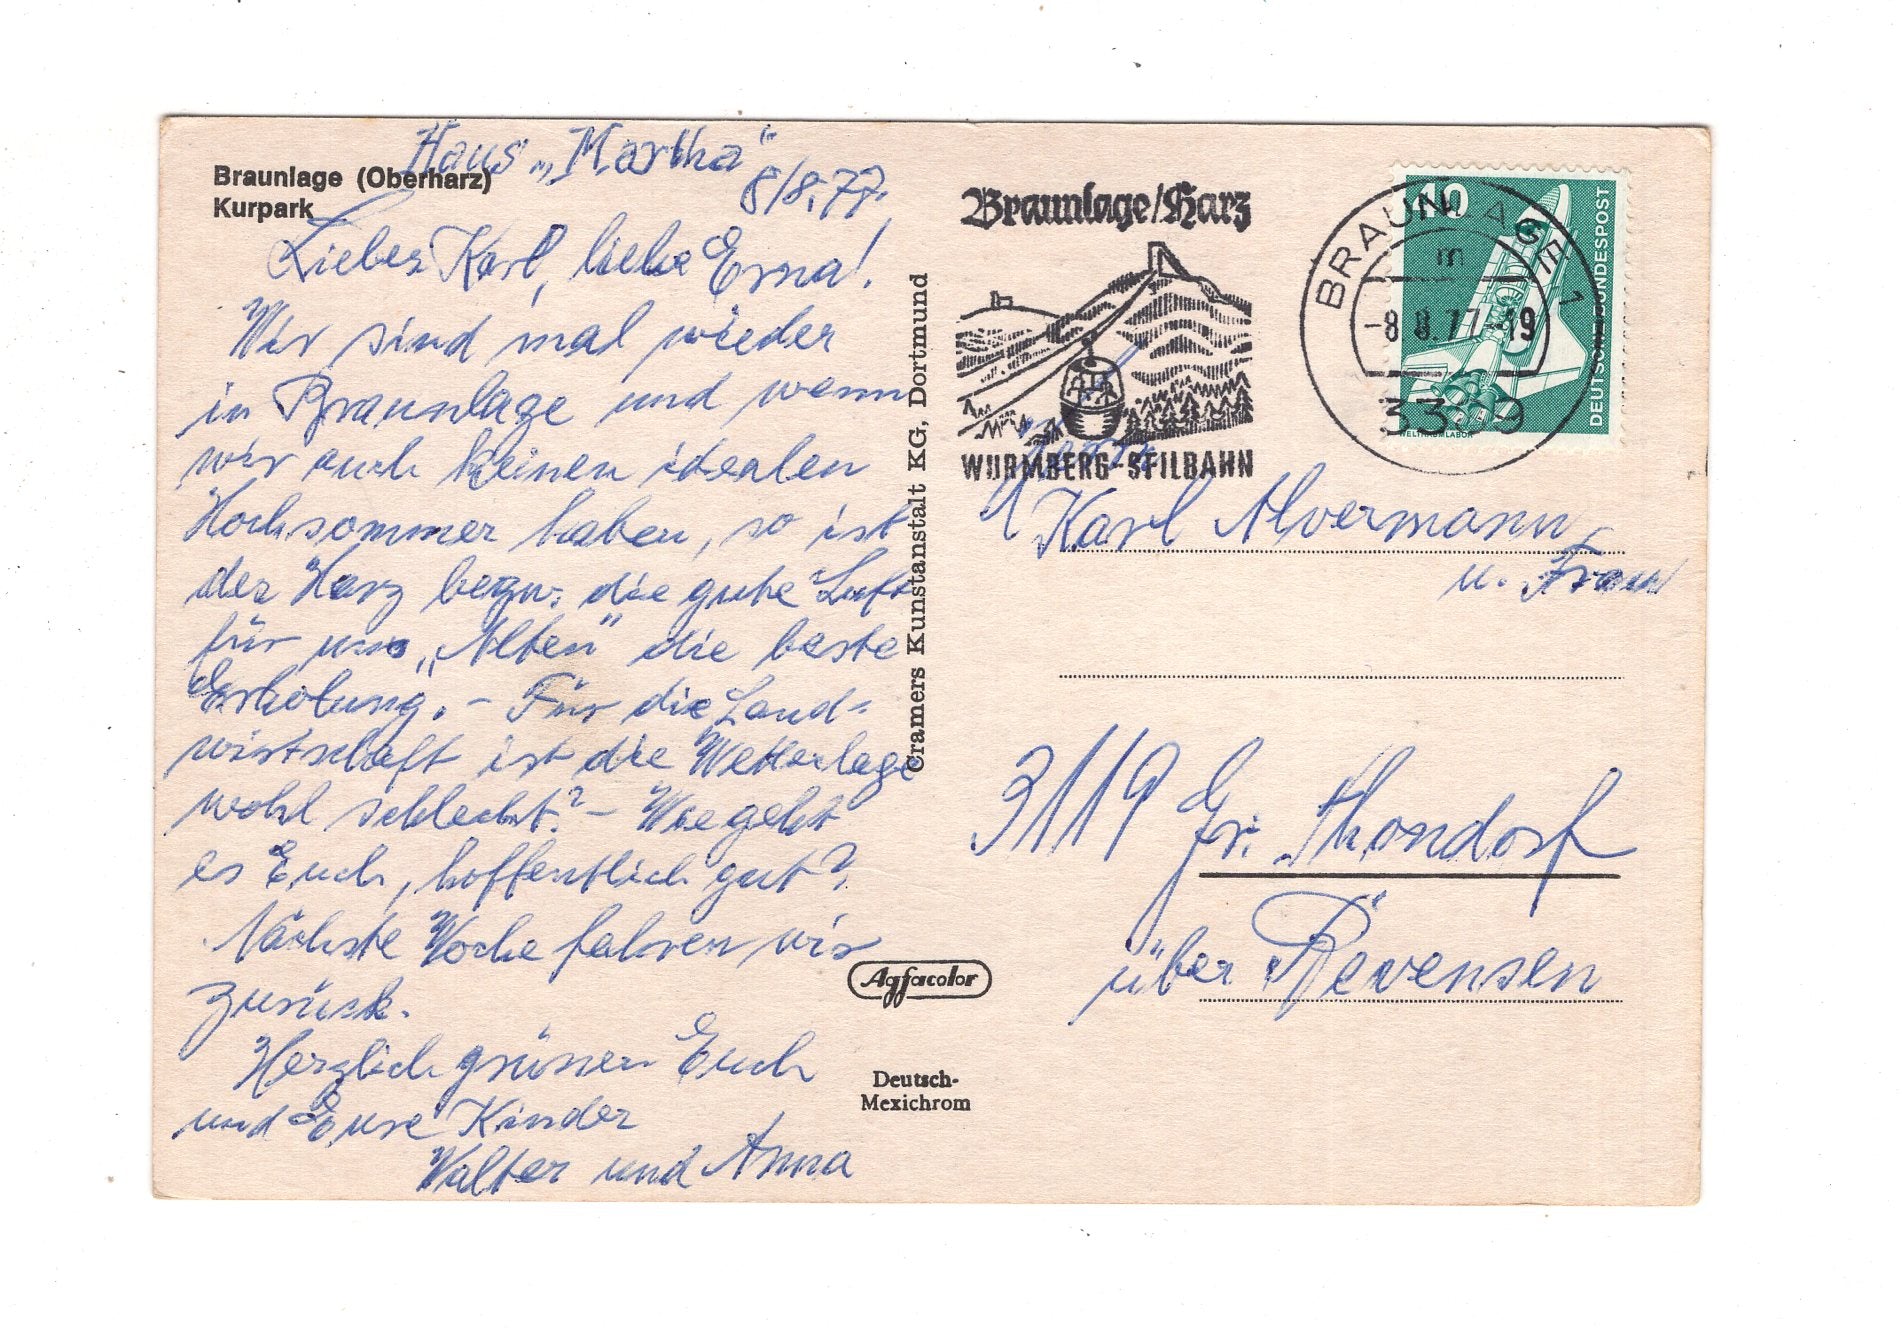 Haus „Martha"
Braunlage (Oberharz)
Kurpark
8/8.77.
Lieber Karl, liebe Erna!
Wir sind mal wieder
in Braunlage und wenn
wir auch keinen idealen
Hochsommer haben, so ist
der Harz bezw. die gute Luft
für uns „Alten" die beste
Erholung. – Für die Land-
wirtschaft ist die Wetterlage
wohl schlecht? – Wie geht
es Euch, hoffentlich gut?
Nächste Woche fahren wir
zurück.
Herzlich grüssen Euch
und Eure Kinder
Walter und Anna
Cramers Kunstanstalt KG, Dortmund
Agfacolor
Deutsch-
Mexichrom
Braunlage/Harz
WURMBERG-SEILBAHN
40
DEUTSCHE BUNDESPOST
WELTRAUMLABOR
BRAUNLAGE 1
m
-8.8.77-19
3389
Karl Alvermann
u. Frau
3119 Gr. Thondorf
über Bevensen